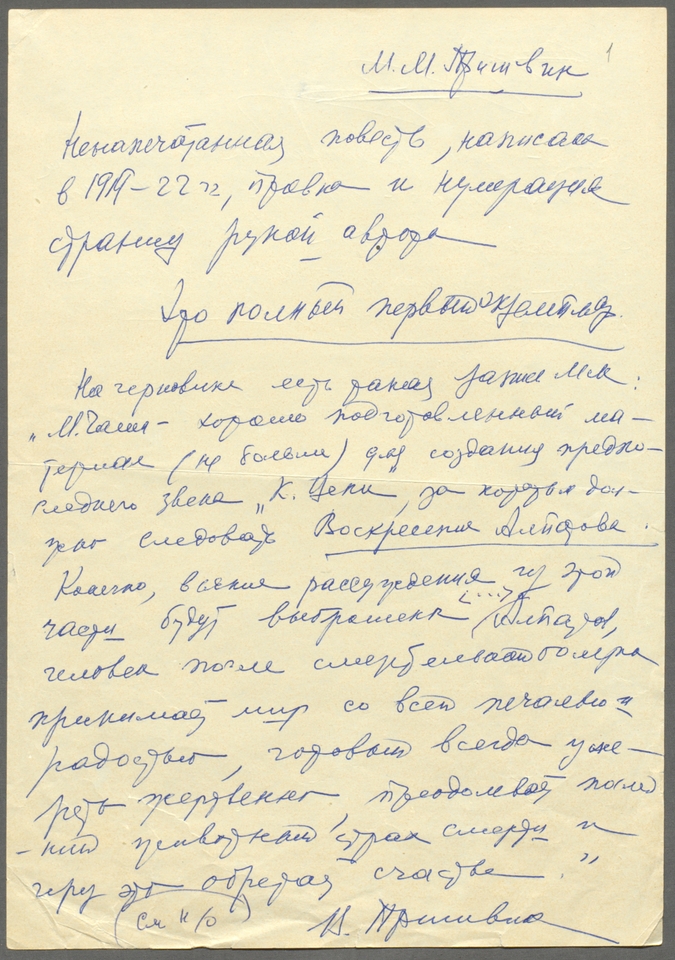 1
М. М. Пришвин
Ненапечатанная повесть, написана
в 1919–22 гг, правка и нумерация
страниц рукой автора
Это полный первый экземпляр.
На черновике есть такая запись М.М.:
"М. Чаша – хорошо подготовленный ма–
териал (не больше) для создания предпо–
следнего звена "К. Цепи", за которым дол–
жно следовать Воскресение Алпатова.
Конечно, всякие рассуждения из этой
части будут выброшены <...> (Алпатов,
человек после смерти
принимает мир со всей печалью и
радостью, готовый всегда уме–
реть жертвенно, преодолевать послед
–ний животный страх смерти и
через это обретая счастье."
(См н/о) В. Пришвина